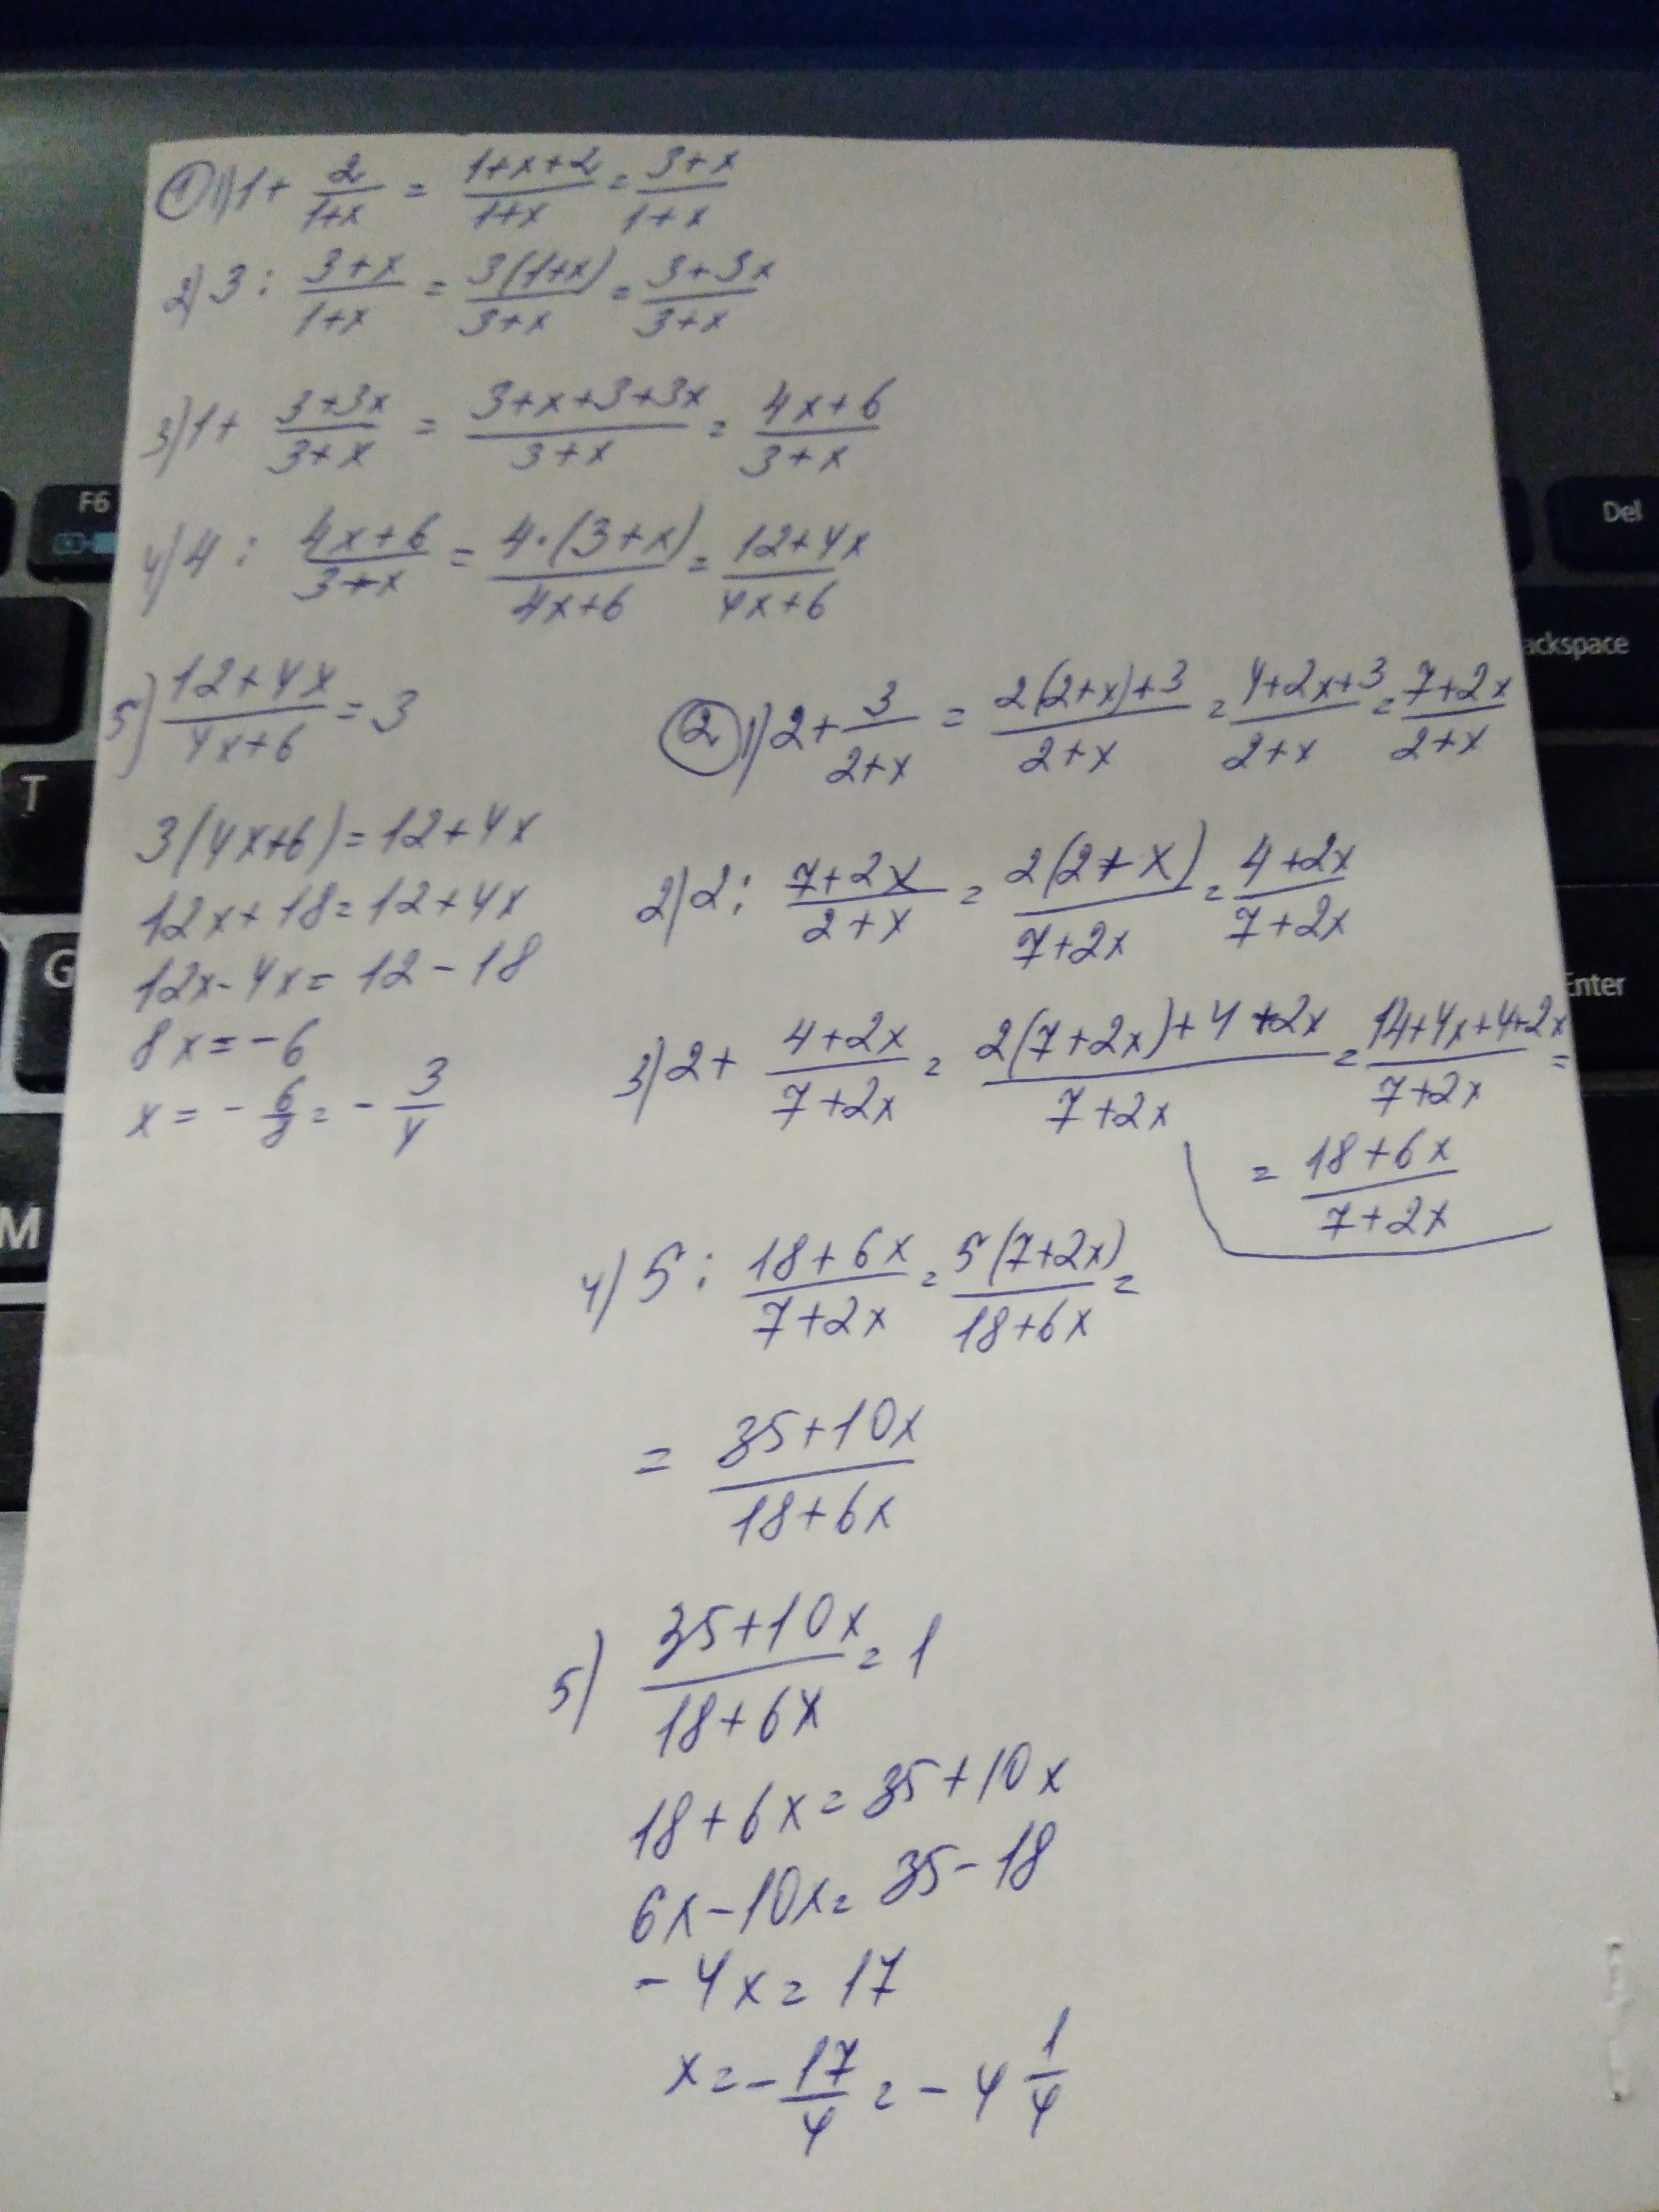 ① 1) 1 + 2/(1+x) = (1+x+2)/(1+x) = (3+x)/(1+x)
2) 3 : (3+x)/(1+x) = 3(1+x)/(3+x) = (3+3x)/(3+x)
3) 1 + (3+3x)/(3+x) = (3+x+3+3x)/(3+x) = (4x+6)/(3+x)
4) 4 : (4x+6)/(3+x) = 4·(3+x)/(4x+6) = (12+4x)/(4x+6)
5) (12+4x)/(4x+6) = 3
3(4x+6) = 12+4x
12x+18 = 12+4x
12x-4x = 12-18
8x = -6
x = -6/8 = -3/4
② 1) 2 + 3/(2+x) = (2(2+x)+3)/(2+x) = (4+2x+3)/(2+x) = (7+2x)/(2+x)
2) 2 : (7+2x)/(2+x) = 2(2+x)/(7+2x) = (4+2x)/(7+2x)
3) 2 + (4+2x)/(7+2x) = (2(7+2x)+4+2x)/(7+2x) = (14+4x+4+2x)/(7+2x) =
= (18+6x)/(7+2x)
4) 5 : (18+6x)/(7+2x) = 5(7+2x)/(18+6x) =
= (35+10x)/(18+6x)
5) (35+10x)/(18+6x) = 1
18+6x = 35+10x
6x-10x = 35-18
-4x = 17
x = -17/4 = -4 1/4
F6
Del
ackspace
T
G
Enter
M